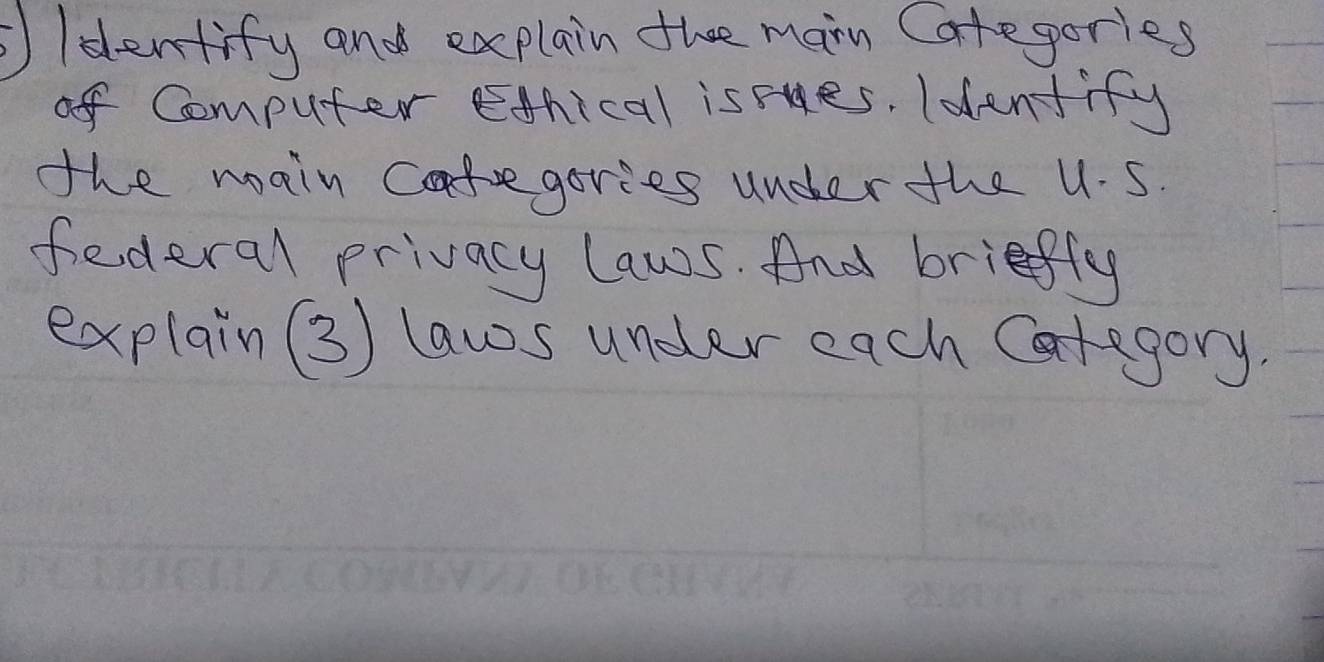 5) Identify and explain the main Categories
of Computer Ethical issues. Identify
the main Categories under the U.S.
federal privacy laws. And briefly
explain (3) laws under each Category.
ECTRICITY COMPANY OF GHANA